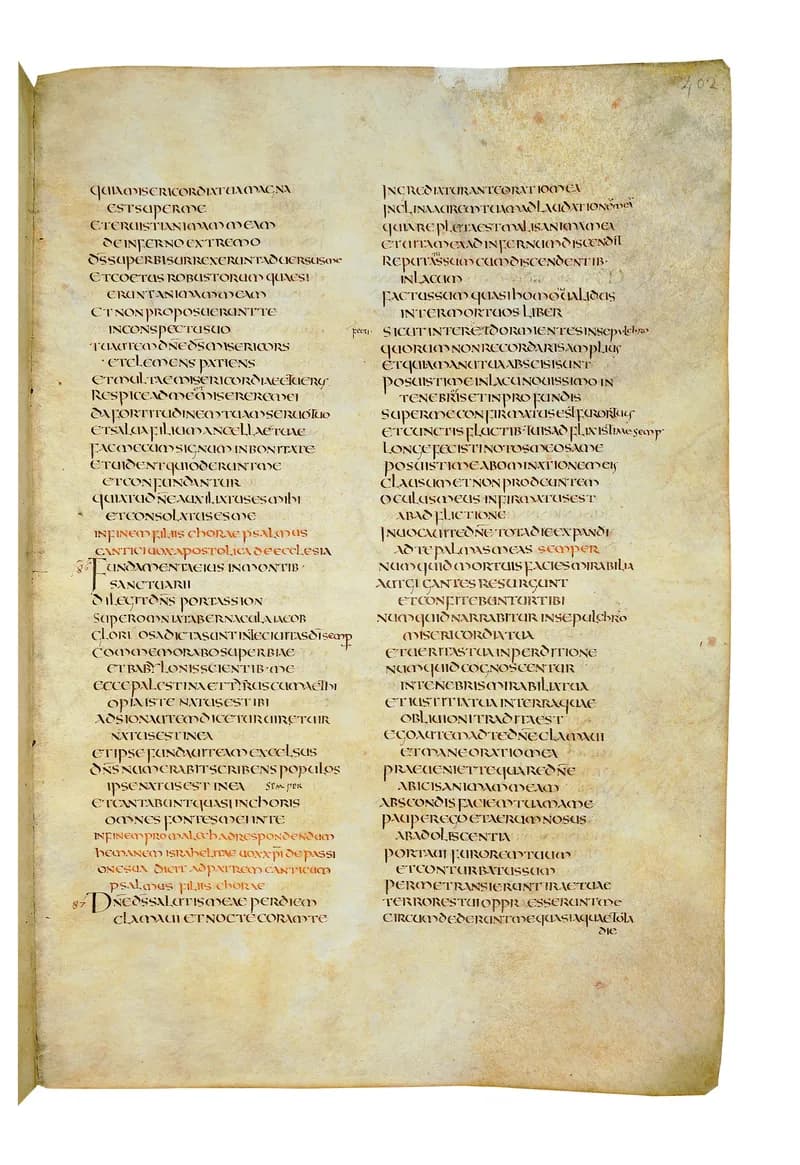 402
QUIAMISERICORDIATUAMAGNA
ESTSUPERME
ETERUISTIANIMAMMEAM
DEINFERNOEXTREMO
D̄SSUPERBISURREXERUNTADUERSUSME
ETCOETUSROBUSTORUMQUAESI
ERUNTANIMAMMEAM
ETNONPROPOSUERUNTTE
INCONSPECTUSUO
TUAUTEMDN̄EDS̄MISERICORS
ETCLEMENSPATIENS
ETMULTAEMISERICORDIAEETUERUS
RESPICEADMEETMISEREREMEI
DAFORTITUDINEMTUAMSERUOTUO
ETSALUAFILIUMANCELLAETUAE
FACMECUMSIGNUMINBONITATE
ETUIDENTQUIODERUNTME
ETCONFUNDANTUR
QUIATUDN̄EAUXILIATUSESMIHI
ETCONSOLATUSESME
INFINEMFILIISCHORAEPSALMUS
CANTICIUOXAPOSTOLICADEECCLESIA
86 FUNDAMENTAEIUSINMONTIB·
SANCTUARII
DILEGITDN̄SPORTASSION
SUPEROMNIATABERNACULAIACOB
GLORIOSADICTASUNTINTECIUITASDĪSEMP
COMMEMORABOSUPERBIAE
ETBABYLONISSCIENTIB·ME
ECCEPALESTINAETTYRUSCUMAETHI
OPIAISTENATUSESTIBI
ADSIONAUTEMDICETURUIRETUIR
NATUSESTINEA
ETIPSEFUNDAUITEAMEXCELSUS
DN̄SNUMERABITSCRIBENSPOPULOS
IPSENATUSESTINEA SEMPER
ETCANTABUNTQUASIINCHORIS
OMNESFONTESMEIINTE
INFINEMPROMALECHADRESPONDENDUM
HEMANEMISRAHELITAEUOXXP̄IDEPASSI
ONESUADICITADPATREMCANTICUM
PSALMUSFILIISCHORAE
87 DN̄EDS̄SALUTISMEAEPERDIEM
CLAMAUIETNOCTECORAMTE
INGREDIATURANTEORATIOMEA
INCLINAAUREMTUAMADLAUDATIONEMMEA
QUIAREPLETAESTMALISANIMAMEA
ETUITAMEAADINFERNUMDISCENDIT
REPUTATUSSUMCUMDISCENDENTIB·
INLACUM
FACTUSSUMQUASIHOMOINUALIDUS
INTERMORTUOSLIBER
SICUTINTERFECTIDORMIENTESINSEPULCHRO
QUORUMNONRECORDARISAMPLIUS
ETQUIAMANUTUAABSCISISUNT
POSUISTIMEINLACUNOUISSIMOIN
TENEBRISETINPROFUNDIS
SUPERMECONFIRMATUSESTFURORTUUS
ETCUNCTISFLUCTIB·TUISADFLIXISTIMESEMP·
LONGEFECISTINOTOSMEOSAME
POSUISTIMEABOMINATIONEMEIS
CLAUSUMETNONPRODEUNTEM
OCULUSMEUSINFIRMATUSEST
ABADFLICTIONE
INUOCAUITEDN̄ETOTADIEEXPANDI
ADTEPALMASMEAS SEMPER
NUMQUIDMORTUISFACIESMIRABILIA
AUTGIGANTESRESURGUNT
ETCONFITEBUNTURTIBI
NUMQUIDNARRABITURINSEPULCHRO
MISERICORDIATUA
ETUERITASTUAINPERDITIONE
NUMQUIDCOGNOSCENTUR
INTENEBRISMIRABILIATUA
ETIUSTITIATUAINTERRAQUAE
OBLIUIONITRADITAEST
EGOAUTEMADTEDN̄ECLAMAUI
ETMANEORATIOMEA
PRAEUENIETTEQUAREDN̄E
ABICISANIMAMMEAM
ABSCONDISFACIEMTUAMAME
PAUPEREGOETAERUMNOSUS
ABADOLISCENTIA
PORTAUIFUROREMTUUM
ETCONTURBATUSSUM
PERMETRANSIERUNTIRAETUAE
TERRORESTUIOPPRESSERUNTME
CIRCUMDEDERUNTMEQUASIAQUAETOTA
DIE